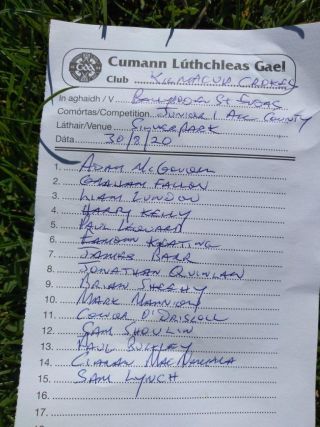 Cumann Lúthchleas Gael
Club KILMACUD CROKES
In aghaidh / V BALLYBODEN ST ENDAS
Comórtas/Competition. JUNIOR 1 ALL COUNTY
Láthair/Venue SILVERPARK
Data 30/8/20
1. ADAM McGOVERN
2. GRAHAM FALLON
3. LIAM LUNDON
4. HARRY KELLY
5. PAUL LEONARD
6. EAMONN KEATING
7. JAMES BARR
8. JONATHAN QUINLAN
9. BRIAN SHEEHY
10. MARK MANNION
11. CONOR O'DRISCOLL
12. SAM SHOULIN
13. PAUL BUCKLEY
14. CIARAN MACNAMARA
15. SAM LYNCH
16.
17.